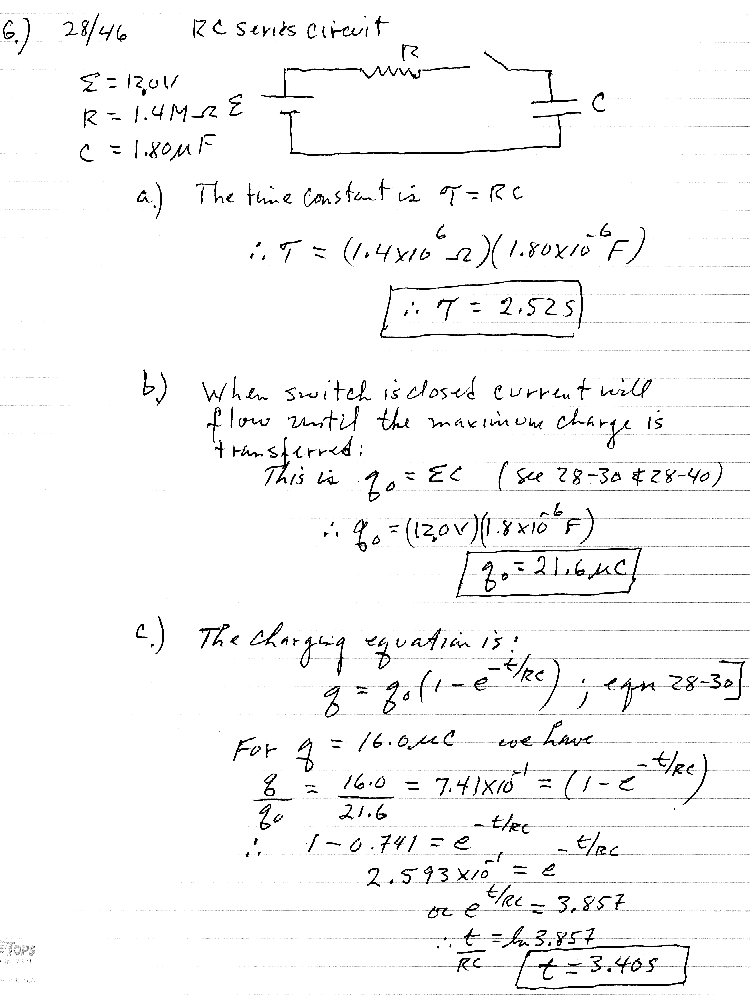 6.) 28/46 RC series circuit
R
Ɛ = 12.0V
R = 1.4MΩ Ɛ
C
C = 1.80μF
a.) The time constant is τ = RC
∴ τ = (1.4x10⁶Ω)(1.80x10⁻⁶F)
∴ τ = 2.52s
b.) When switch is closed current will
flow until the maximum charge is
transferred:
This is q₀ = ƐC (see 28-30 & 28-40)
∴ q₀ = (12.0V)(1.8x10⁻⁶F)
q₀ = 21.6μC
c.) The charging equation is:
q = q₀(1 - e^(-t/RC)) ; eqn 28-30]
For q = 16.0μC we have
q/q₀ = 16.0/21.6 = 7.41x10⁻¹ = (1 - e^(-t/RC))
∴ 1 - 0.741 = e^(-t/RC)
2.593x10⁻¹ = e^(-t/RC)
or e^(t/RC) = 3.857
∴ t/RC = ln 3.857
t = 3.40s
TOPS